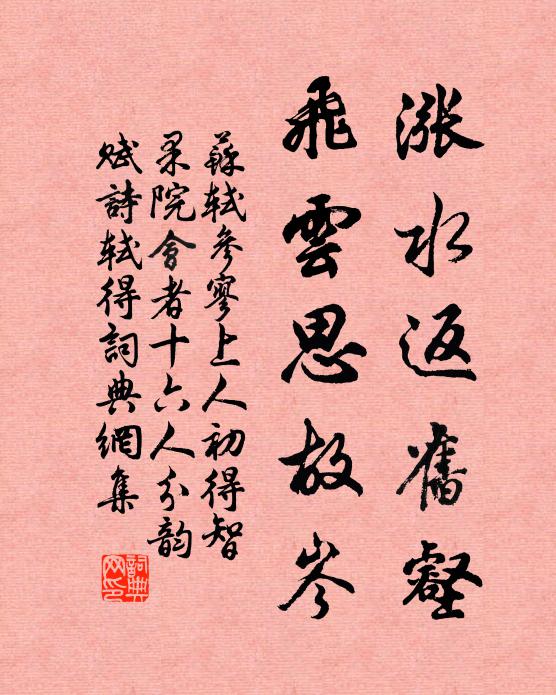 漲水返舊壑
飛雲思故岑
蘇軾參寥上人初得智
果院會者十六人分韻
賦詩軾得詞典網集
詞典网印